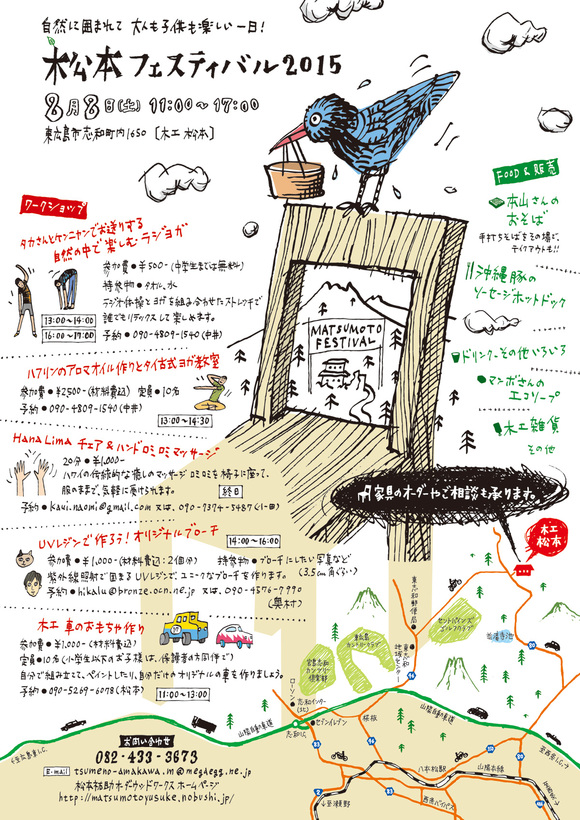 自然に囲まれて 大人も子供も楽しい一日!
松本フェスティバル2015
8月8日(土) 11:00〜17:00
東広島市志和町内1650 [木工 松本]
ワークショップ
タカさんとケンニャンでお送りする
自然の中で楽しむラジヨガ
参加費●¥500-(中学生までは無料)
持参物●タオル、水
ラジオ体操とヨガを組み合わせたストレッチで
誰でもリラックスして楽しめます。
予約●090-4809-1540(中井)
13:00〜14:00
16:00〜17:00
ハフリンのアロマオイル作りとタイ古式ヨガ教室
参加費●¥2500-(材料費込) 定員●10名
予約●090-4809-1540(中井)
13:00〜14:30
Hana Lima チェア&ハンドロミロミマッサージ
20分●¥1,000-
ハワイの伝統的な癒しのマッサージ ロミロミを椅子に座って、
服のままで、気軽に受けられます。
終日
予約●kaui.naomi@gmail.com 又は、090-7374-5487(小田)
UVレジンで作ろう!オリジナルブローチ
14:00〜16:00
参加費●¥1,000-(材料費込:2個分) 持参物●ブローチにしたい写真など
(3.5cm角ぐらい)
紫外線照射で固まるUVレジンで、ユニークなブローチを作ります。
予約●hikalu@bronze.ocn.ne.jp 又は、090-4576-7990
(奥村)
木工 車のおもちゃ作り
参加費●¥1,000-(材料費込)
定員●10名(小学生以下のお子様は、保護者の方同伴で)
自分で組み立てて、ペイントしたり、自分だけのオリジナルの車を作りましょう。
予約●090-5269-6078(松本)
11:00〜13:00
MATSUMOTO
FESTIVAL
FOOD & 販売
本山さんの
おそば
手打ちそばをその場で、
テイクアウトも!!
沖縄豚の
ソーセージホットドック
ドリンクその他いろいろ
マンボさんの
エコソープ
木工雑貨
その他
家具のオーダーやご相談も承ります。
木工
松本
東志和郵便局
セントパインズ
ゴルフクラブ
東広島
カントリークラブ
東志和
地域センター
宮島志和
カントリー
倶楽部
ローソン
志和インター
(北)
セブンイレブン
志和I.C.
山陽自動車道
山陽自動車道
八本松駅
山陽本線
西条バイパス
至瀬野
お問い合わせ
082-433-3673
E-mail tsumeno-amakawa.m@megaegg.ne.jp
松本祐助ウッドワークス ホームページ
http://matsumotoyusuke.nobushi.jp/